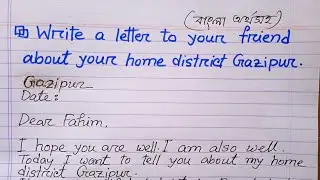 (বাংলা অর্থসহ)
Write a letter to your friend
about your home district Gazipur.
Gazipur
Date:
Dear Fahim,
I hope you are well. I am also well.
Today I want to tell you about my home
district Gazipur.